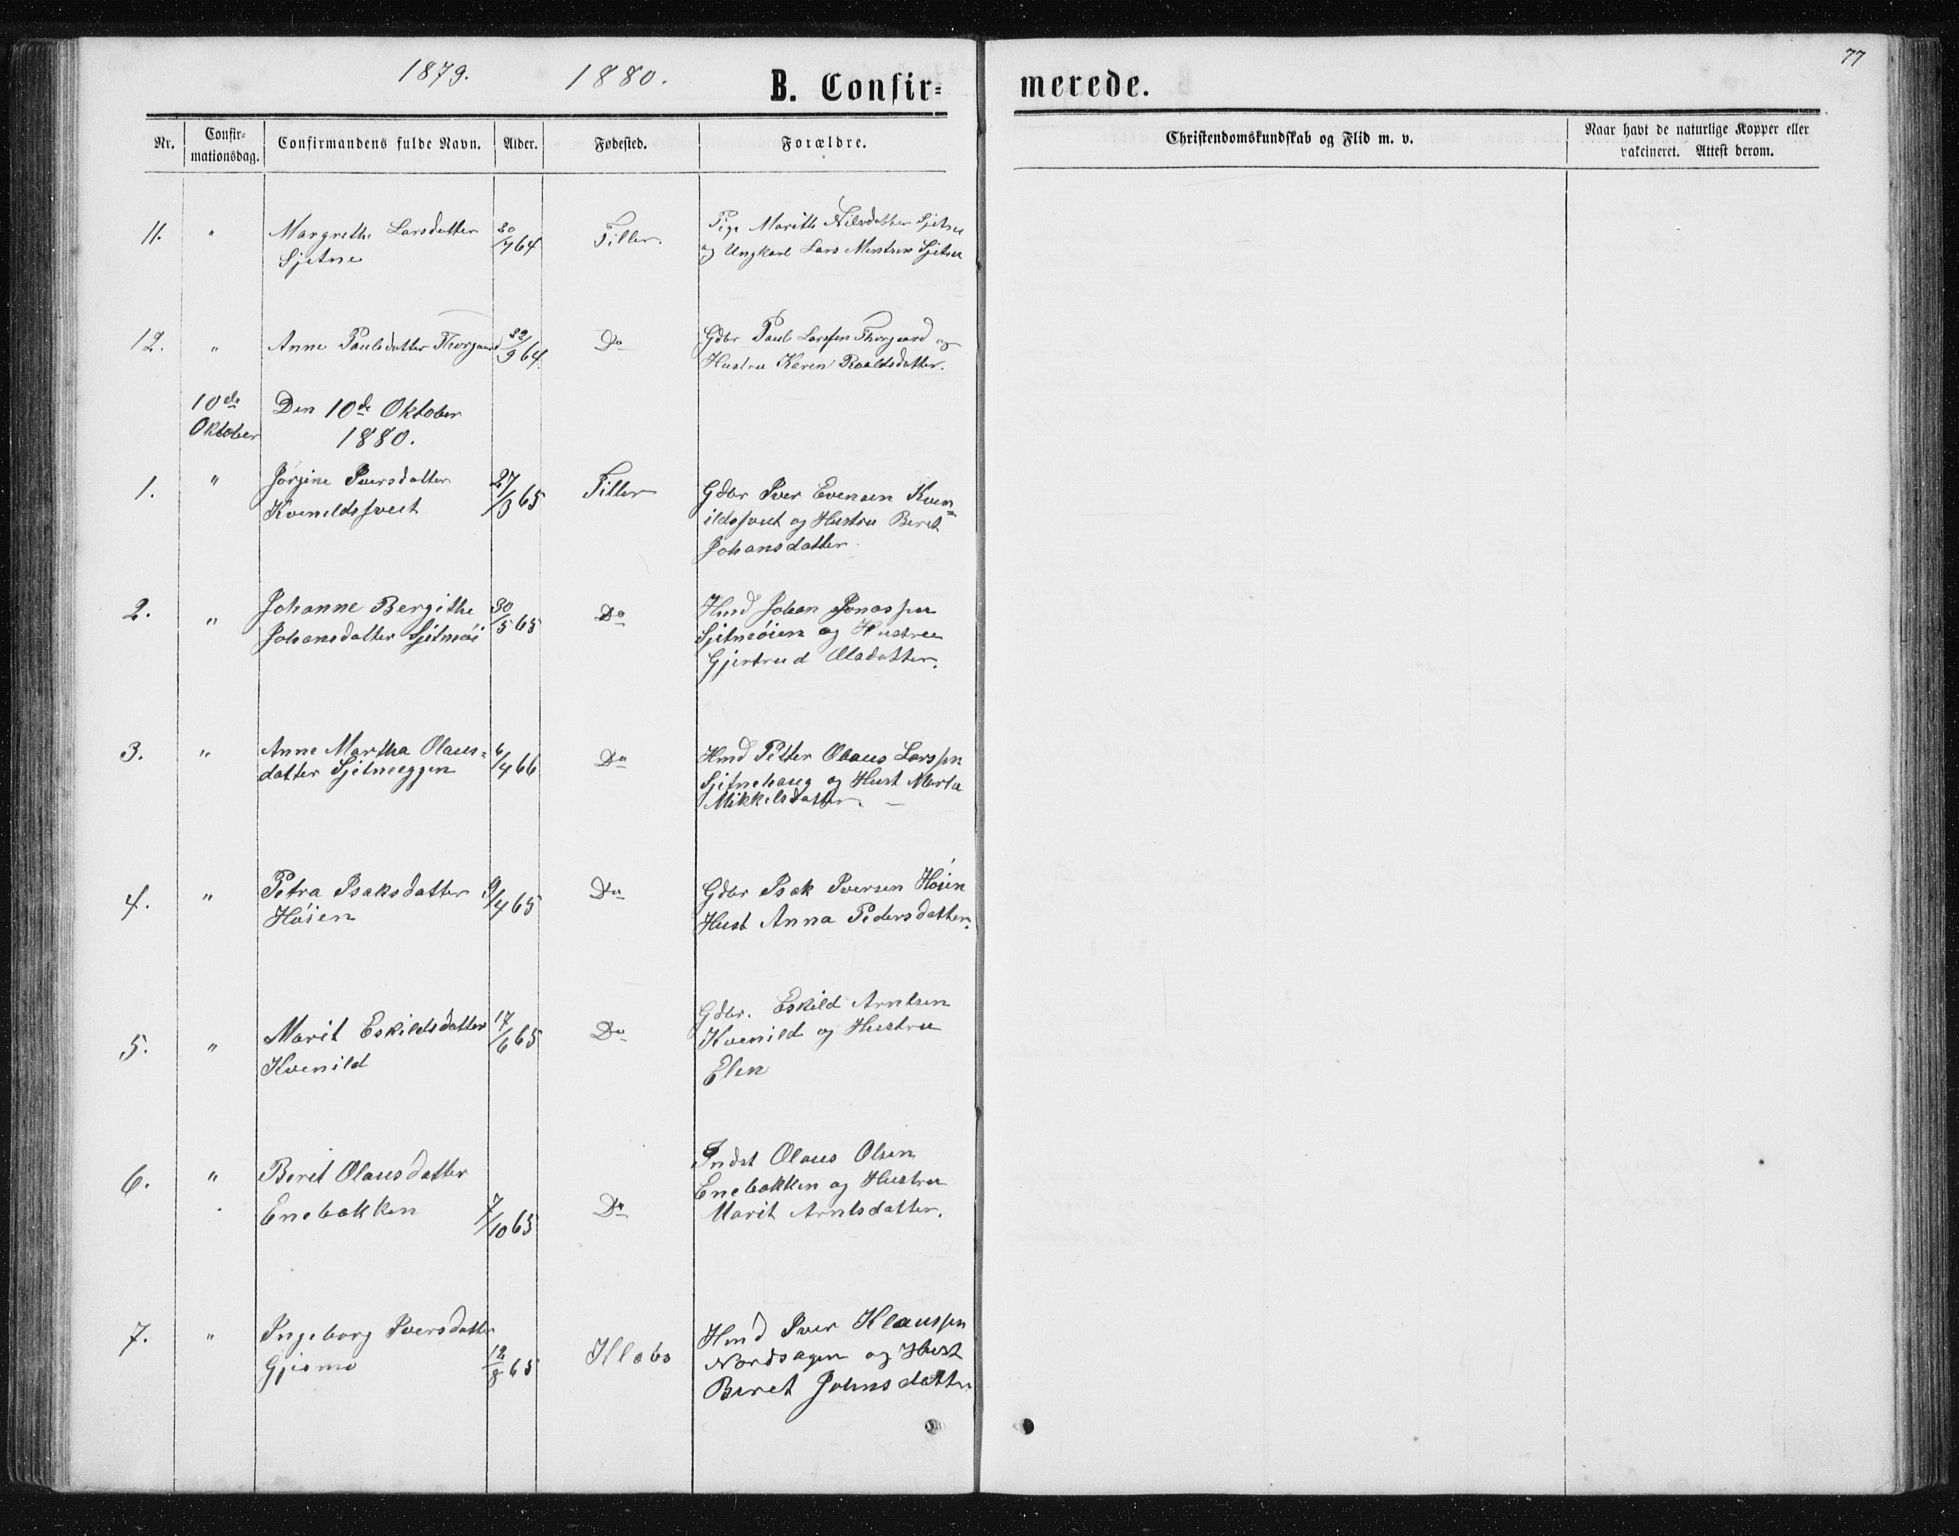 77
1879. 1880. B. Confir= merede.
Nr. Confir-mationsdag. Confirmandens fulde Navn. Alder. Fødested. Forældre. Christendomskundskab og Flid m. v. Naar havt de naturlige Kopper eller vakcineret. Attest derom.
11. " Margrethe Larsdatter 20/7 64 Tiller. Pige Marith Nilsdatter Sjetne
Sjetne og Ungkarl Lars Sjetne
12. " Anne Paulsdatter Thorgaard /9 64. Do Gdbr Paul Larssen Thorgaard og
Hustru Karen Roaldsdatter.
10de Oktober Den 10de Oktober
1880.
1. " Jørgine Iversdatter 27/3 65 Tiller Gdbr Iver Evensen Kven=
Kvenildstveit ildstveit og Hustru Beret
Johansdatter.
2. " Johanne Bergithe 30/5 65 Do Hmd Johan Jonassen
Johansdatter Sjetneøi Sjetneøien og Hustru
Gjertrud Olsdatter.
3. " Anne Martha Olaus= 6/4 66 Do Hmd Petter Olaus Larssen
datter Sjetneeggen Sjetnehaug og Hust Marta
Mikkelsdatter. –
4. " Petra Isaksdatter 9/4 65 Do Gdbr Isak Iversen Høien
Høien Hust Anna Pedersdatter.
5. " Marit Eskildsdatter 17/6 65 Do Gdbr. Eskild Arntsen
Kvenild Kvenild og Hustru
Elen
6. " Beret Olausdatter Indst Olaus Olsen
Enebakken 7/10 65 Do Enebakken og Hustru
Marit Arntsdatter.
7. " Ingeborg Iversdatter Hmd Iver Klaussen
Gjesmo 12/8 65 Klæbo Nordsagen og Hust
Beret Johnsdatter